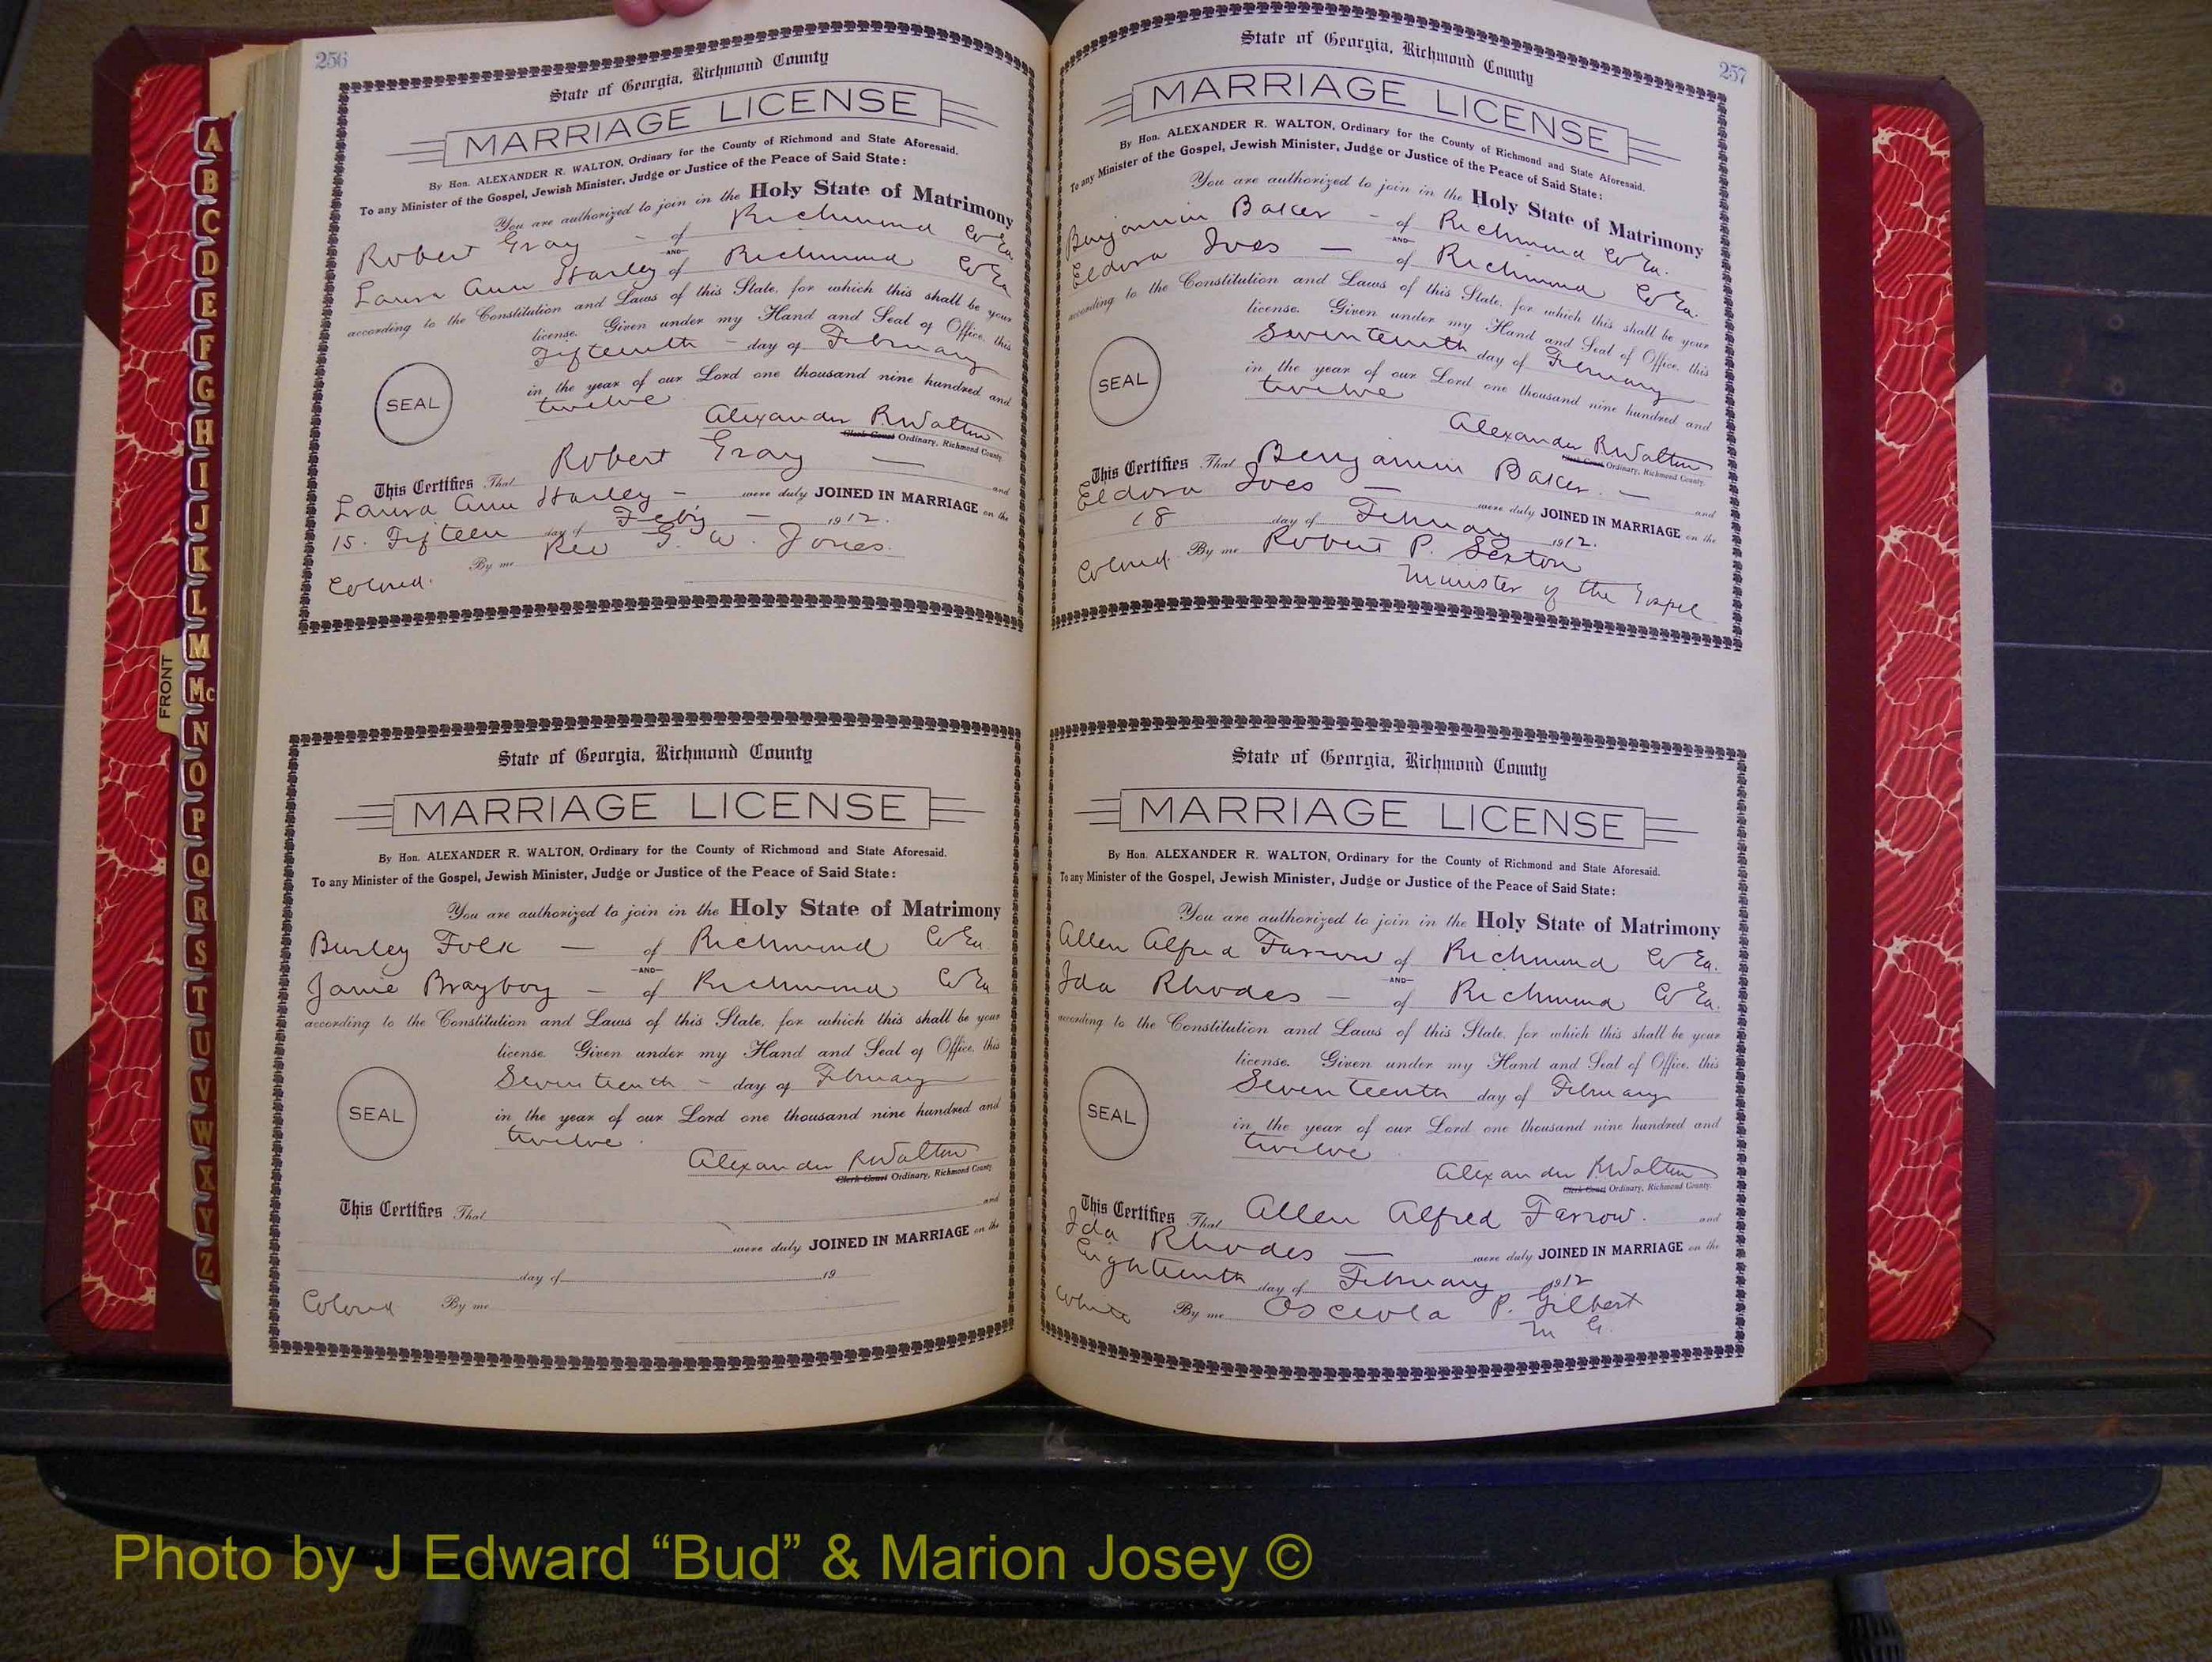 256
State of Georgia, Richmond County
MARRIAGE LICENSE
By Hon. ALEXANDER R. WALTON, Ordinary for the County of Richmond and State Aforesaid.
To any Minister of the Gospel, Jewish Minister, Judge or Justice of the Peace of Said State:
You are authorized to join in the Holy State of Matrimony
Robert Gray - of Richmond Co Ga.
-AND-
Laura Ann Harley of Richmond Co Ga
according to the Constitution and Laws of this State, for which this shall be your
license. Given under my Hand and Seal of Office, this
Fifteenth - day of February
in the year of our Lord one thousand nine hundred and
SEAL
twelve
Alexander R Walton
Clerk Court Ordinary, Richmond County
This Certifies That Robert Gray — and
Laura Ann Harley - were duly JOINED IN MARRIAGE on the
15. Fifteen day of Feby — 1912.
Colored. By me Rev G. W. Jones.
State of Georgia, Richmond County
MARRIAGE LICENSE
By Hon. ALEXANDER R. WALTON, Ordinary for the County of Richmond and State Aforesaid.
To any Minister of the Gospel, Jewish Minister, Judge or Justice of the Peace of Said State:
You are authorized to join in the Holy State of Matrimony
Burley Folk — of Richmond Co Ga.
-AND-
Janie Brayboy - of Richmond Co Ga
according to the Constitution and Laws of this State, for which this shall be your
license. Given under my Hand and Seal of Office, this
Seventeenth - day of February
SEAL
in the year of our Lord one thousand nine hundred and
twelve.
Alexander R Walton
Clerk Court Ordinary, Richmond County
This Certifies That and
were duly JOINED IN MARRIAGE on the
day of 19
Colored By me
257
State of Georgia, Richmond County
MARRIAGE LICENSE
By Hon. ALEXANDER R. WALTON, Ordinary for the County of Richmond and State Aforesaid.
To any Minister of the Gospel, Jewish Minister, Judge or Justice of the Peace of Said State:
You are authorized to join in the Holy State of Matrimony
Benjamin Baker - of Richmond Co Ga.
-AND-
Eldora Ives — of Richmond Co Ga.
according to the Constitution and Laws of this State, for which this shall be your
license. Given under my Hand and Seal of Office, this
Seventeenth day of February
SEAL
in the year of our Lord one thousand nine hundred and
twelve
Alexander R Walton
Clerk Court Ordinary, Richmond County
This Certifies That Benjamin Baker. — and
Eldora Ives — were duly JOINED IN MARRIAGE on the
18 day of February 1912.
Colored. By me Robert P. Sexton
Minister of the Gospel
State of Georgia, Richmond County
MARRIAGE LICENSE
By Hon. ALEXANDER R. WALTON, Ordinary for the County of Richmond and State Aforesaid.
To any Minister of the Gospel, Jewish Minister, Judge or Justice of the Peace of Said State:
You are authorized to join in the Holy State of Matrimony
Allen Alfred Farrow of Richmond Co Ga.
-AND-
Ida Rhodes — of Richmond Co Ga.
according to the Constitution and Laws of this State, for which this shall be your
license. Given under my Hand and Seal of Office, this
Seventeenth day of February
SEAL
in the year of our Lord one thousand nine hundred and
twelve
Alexander R Walton
Clerk Court Ordinary, Richmond County.
This Certifies That Allen Alfred Farrow. and
Ida Rhodes — were duly JOINED IN MARRIAGE on the
Eighteenth day of February 1912
White By me Osceola P. Gilbert
M G.
A
B
C
D
E
F
G
H
I
J
K
L
M
Mc
N
O
P
Q
R
S
T
U
V
W
X
Y
Z
FRONT
Photo by J Edward “Bud” & Marion Josey ©